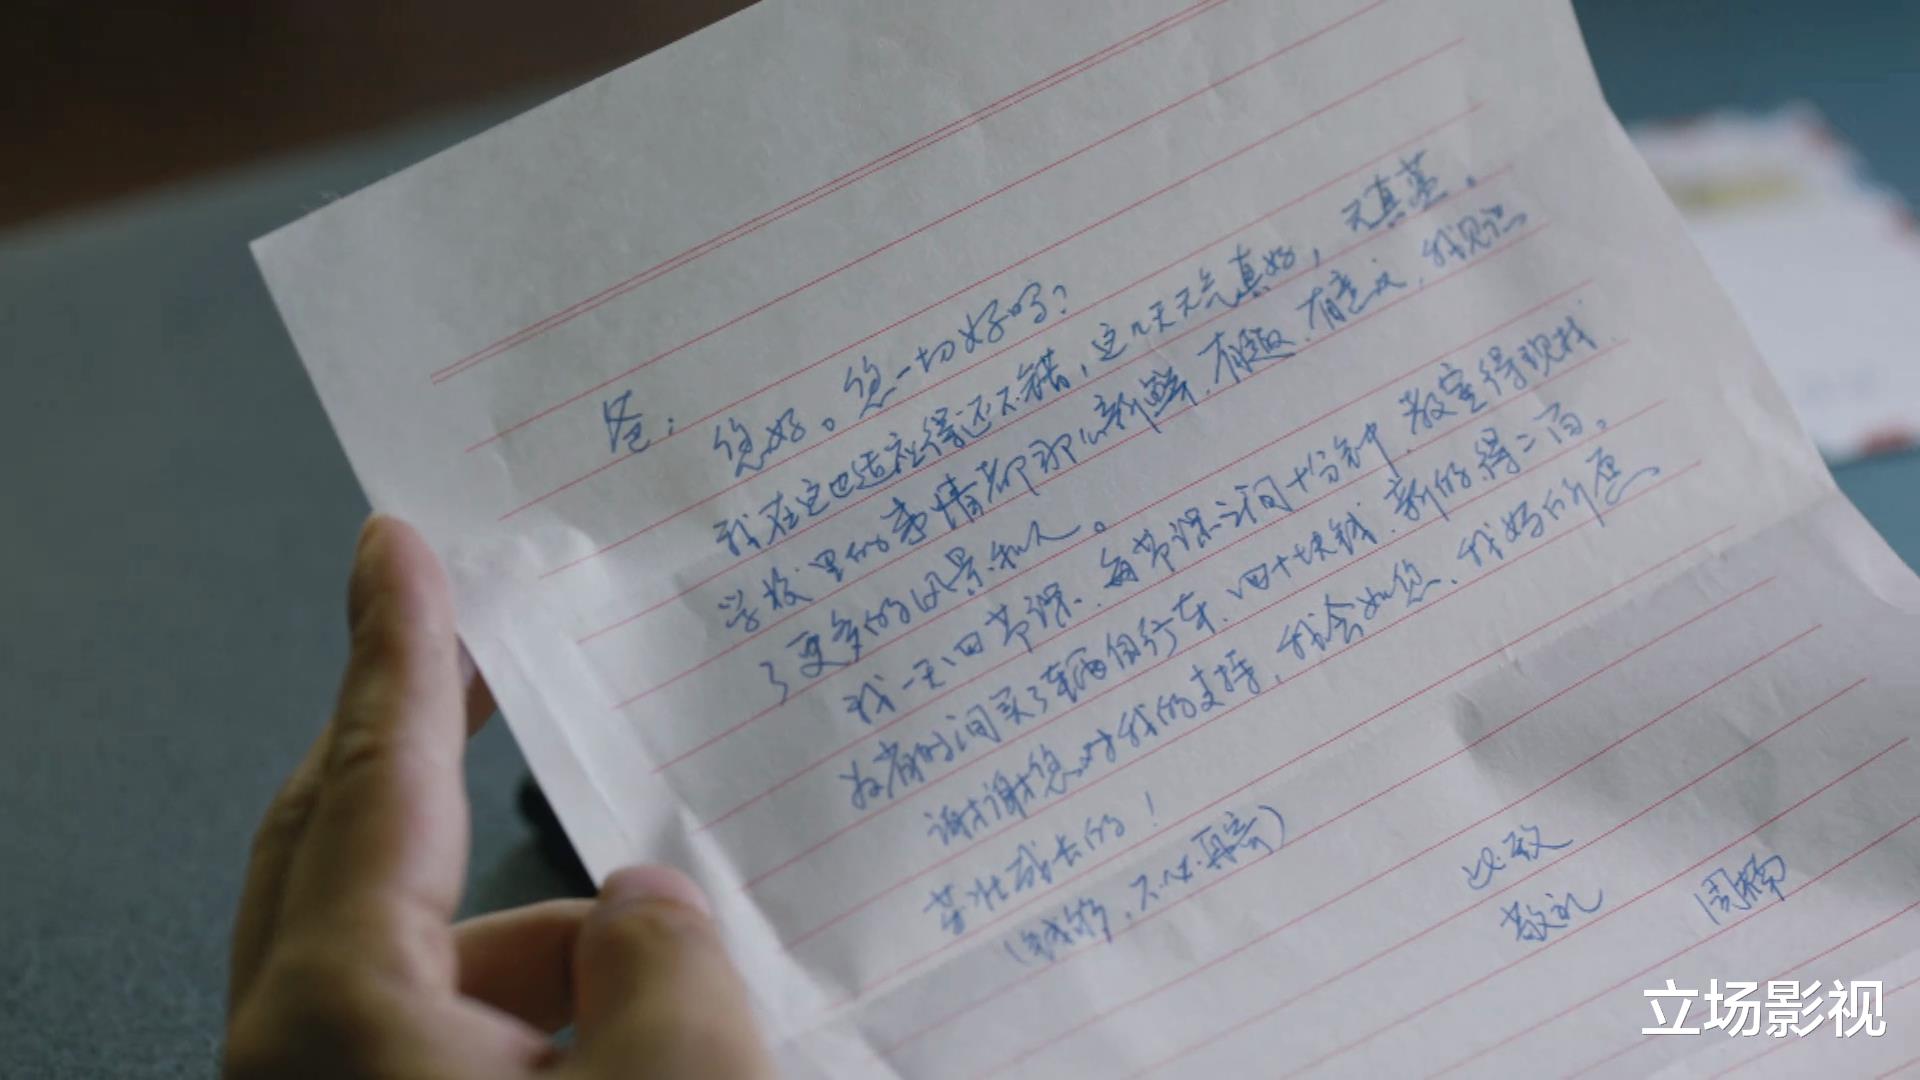 爸：
您好。您一切好吗？
我在这也适应得还不错，这几天天气真好，天真蓝，
学校里的事情都那么新鲜，有趣，有意义，我见识
了更多的风景和人。
我一天四节课，每节课之间十分钟，教室得现找，
为省时间买了车辆自行车，四十块钱，新的得二百。
谢谢您对我的支持，我会如您、我妈所愿、
茁壮成长的！
（钱够，不必再寄）
此致
敬礼
周楠
立场影视